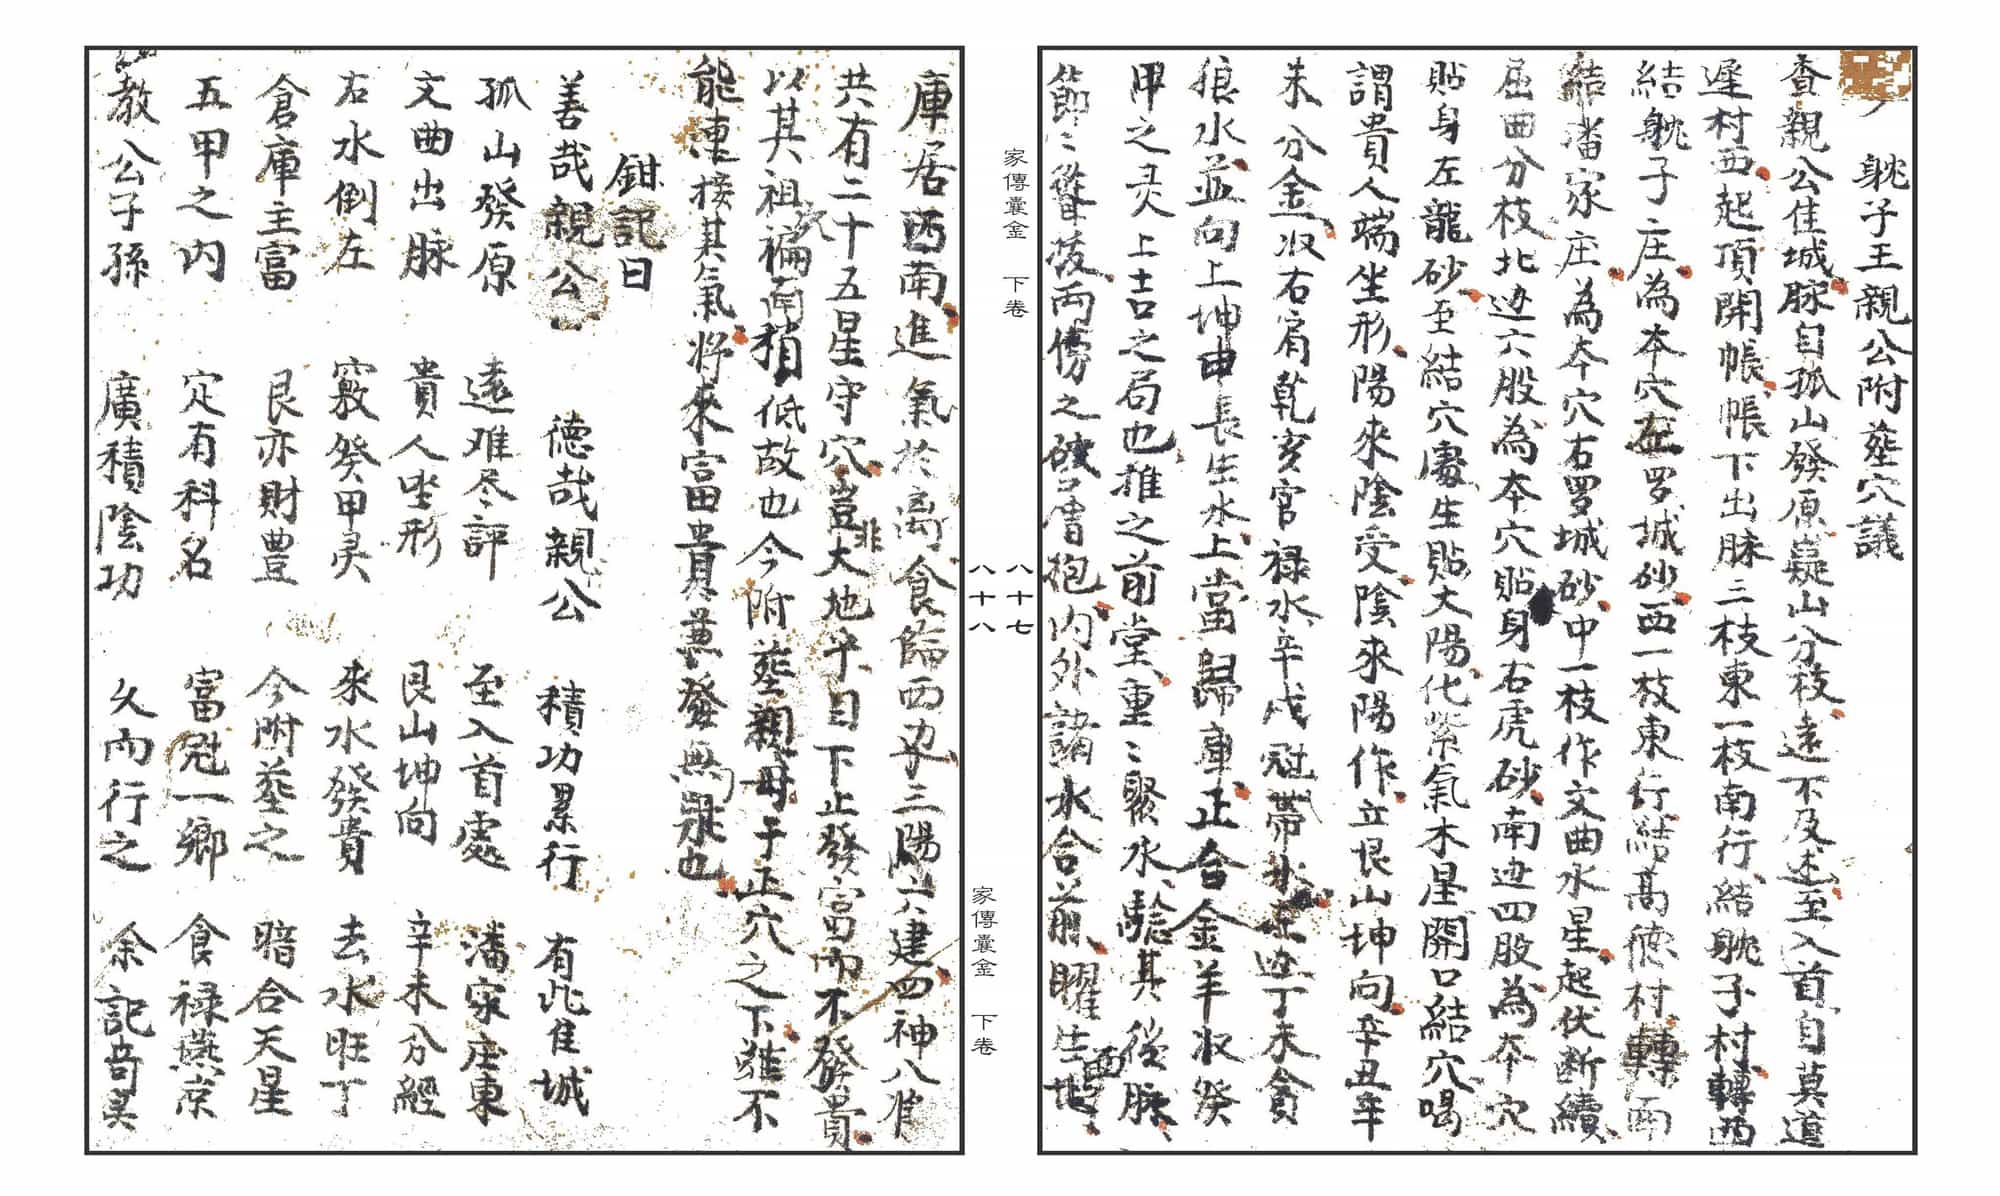 躭子王親公附塟穴議
查親公佳城脉自孤山發原嶷山分枝遠不及述至入首自莫道
遲村西起頂開帳帳下出脉三枝東一枝南行結躭子村轉西
結躭子庄為本穴左罗城砂西一枝東行結髙德村轉南
結潘家庄為本穴右罗城砂中一枝作文曲水星起伏断續
屈曲分枝北边六股為本穴貼身右虎砂南边四股為本穴
貼身左龍砂至結穴處生貼大陽化紫氣木星開口結穴喝
謂貴人端坐形陽來陰受陰來陽作立艮山坤向辛丑辛
未分金収右肩乾亥官禄水辛戌冠帶水左边丁未貪
狼水並向上坤申長生水上當歸庫正合金羊収癸
甲之灵上吉之局也推之前堂重〻聚水騐其後脉
節〻聳拔両傍之砂層層抱内外諸水合前曜生西地
家傳囊金 下卷
八十七
八十八
家傳囊金 下卷
庫居西南進氣於离食餙西兌三陽六建四神八准
共有二十五星守穴豈非大地乎目下止發富而不發貴
以其祖穴褊南稍低故也今附塟親母于正穴之下雖不
能連接其氣将來富貴兼發無疑也
鉗記曰
善哉親公 德哉親公 積功累行 有此隹城
孤山發原 遠难尽評 至入首處 潘家庄東
文曲出脉 貴人坐形 艮山坤向 辛未分經
右水倒左 竅癸甲灵 來水發貴 去水旺丁
倉庫主富 艮亦財豊 今附塟之 暗合天星
五甲之内 定有科名 富冠一鄉 食禄燕京
教公子孫 廣積陰功 久而行之 余記奇灵